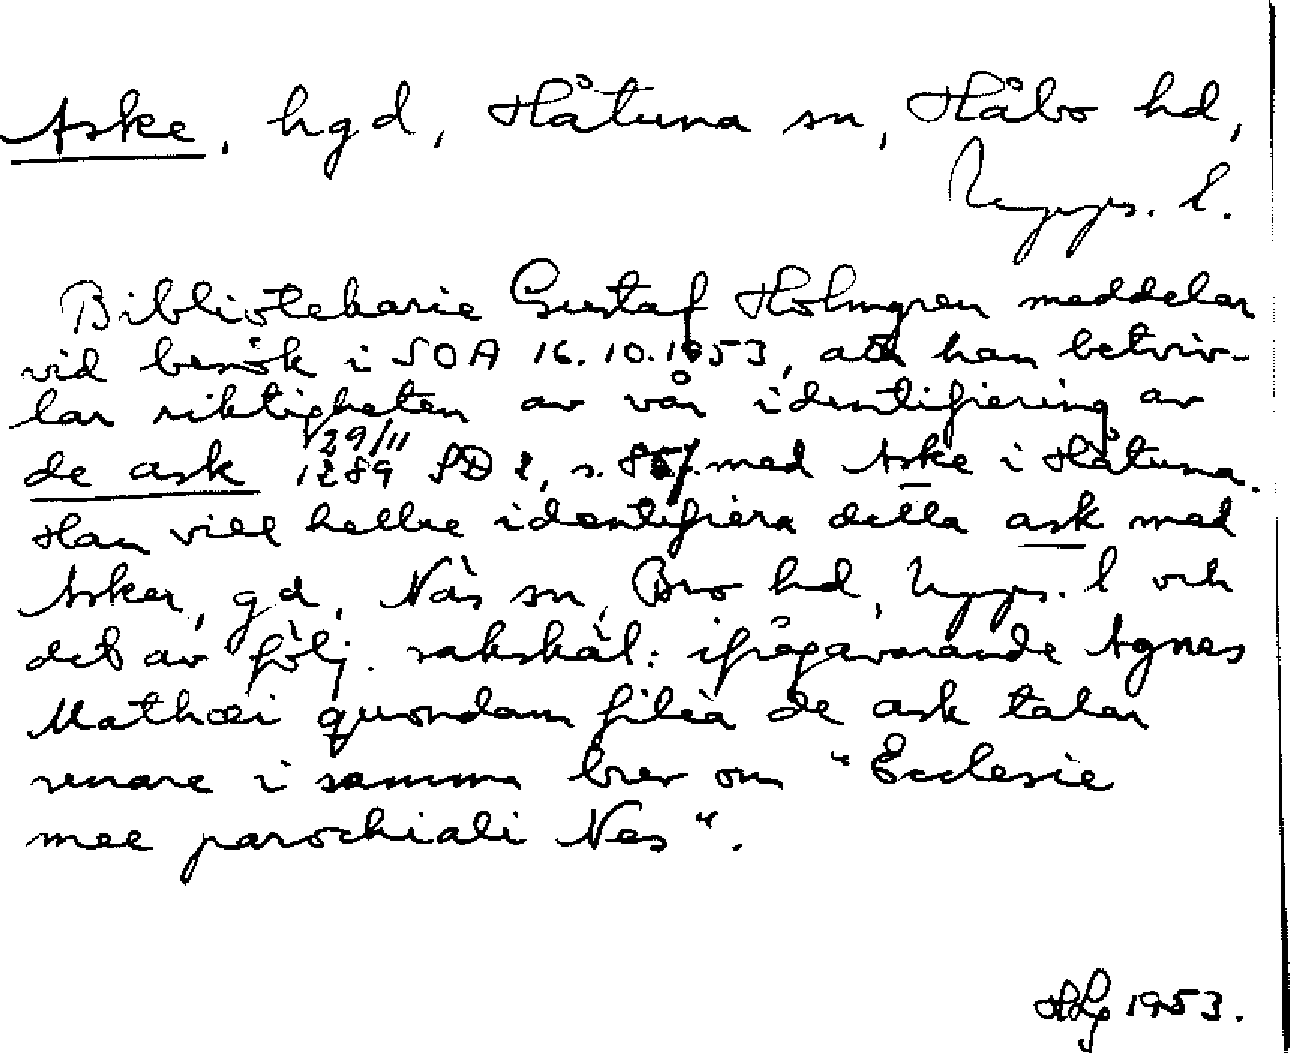 Aske, hgd, Håtuna sn, Håbo hd,
Upps. l.
Bibliotekarie Gustaf Holmgren meddelar
vid besök i SOA 16.10.1953, att han betviv-
lar riktigheten av vår identifiering av
29/11
de ask 1289 SD 2, s. 85 med Aske i Håtuna.
Han vill hellre identifiera detta ask med
Asker, gd, Näs sn, Bro hd, Upps. l och
det av följ. sakskäl: ifrågavarande Agnes
Mathæi quondam filia de ask talar
senare i samma brev om "Ecclesie
mee parochiali Nes".
HLg 1953.